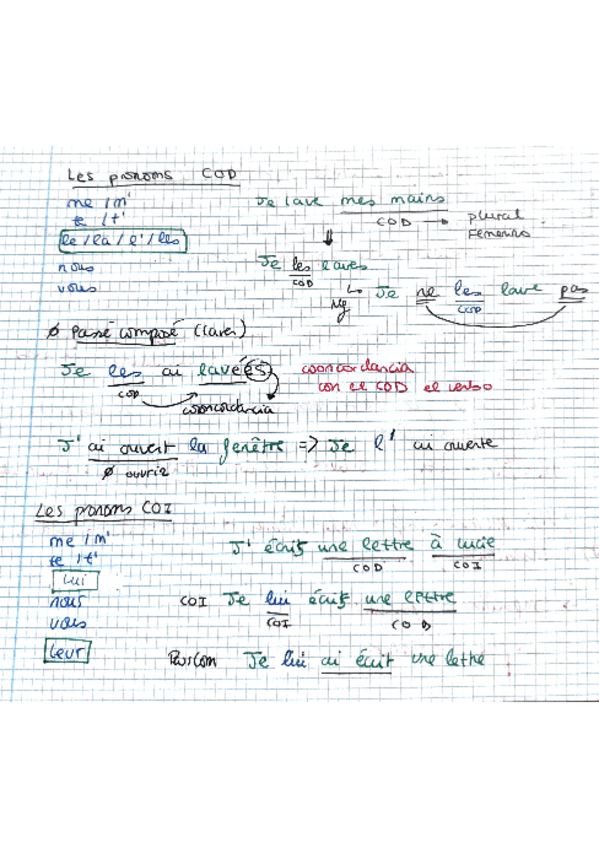 Les pronoms COD
me / m'
te / t'
le / la / l' / les
nous
vous
Je lave mes mains
COD → plural
Femenino
⇓
Je les laves
COD
Ng
Je ne les lave pas
COD
Ø Passé composé (laver)
Je les ai lavées
COD
concordancia
concordancia
con el COD el verbo
J'ai ouvert la fenêtre => Je l' ai ouverte
Ø ouvrir
Les pronoms COI
me / m'
te / t'
lui
nous
vous
leur
J' écris une lettre à Lucie
COD COI
COI Je lui écris une lettre
COI COD
Je lui ai écrit une lettre